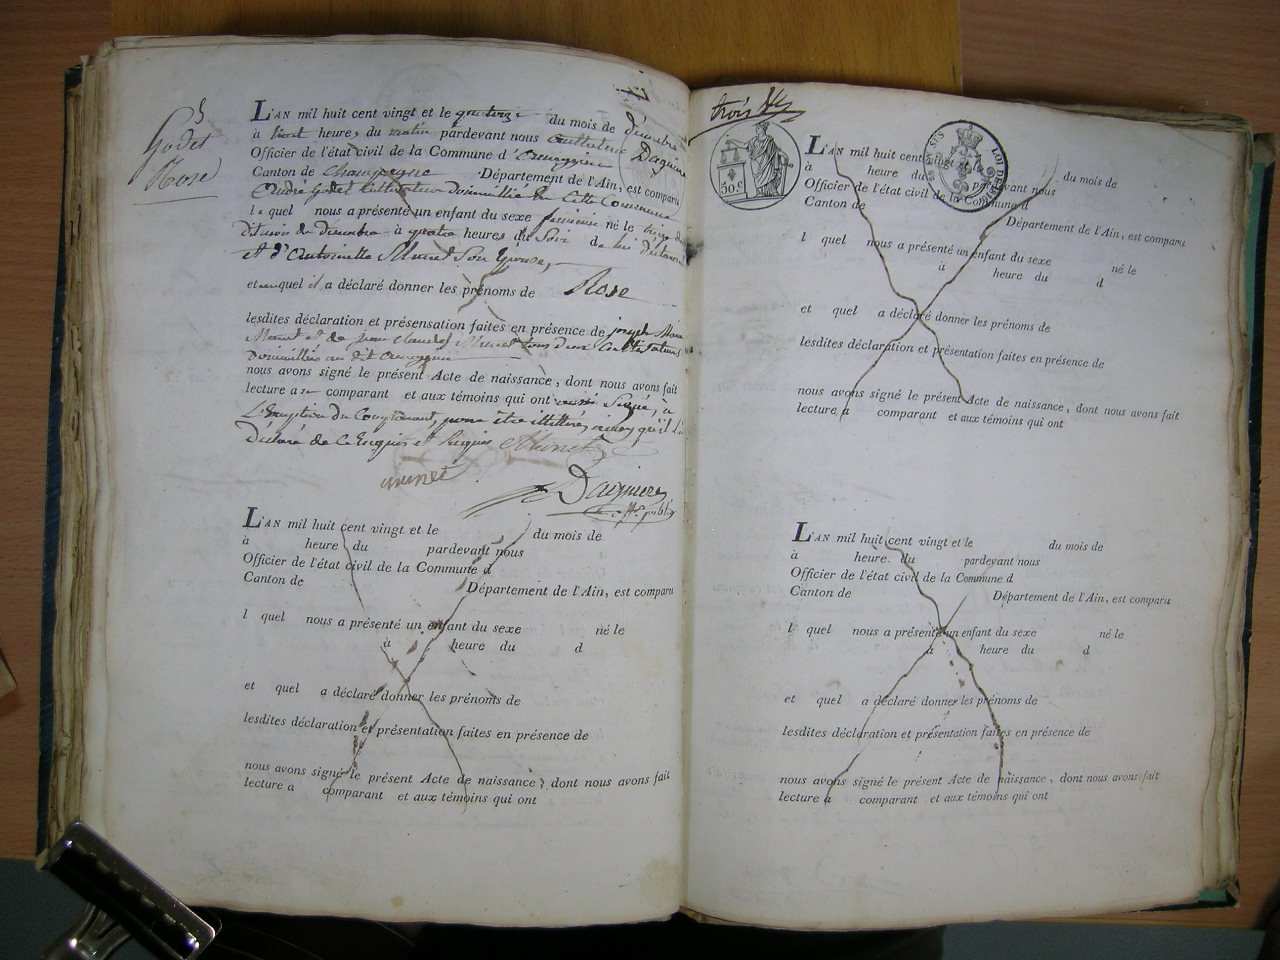 5
Godet
Rose
L'AN mil huit cent vingt et le quatorze du mois de décembre
à huit heures du matin pardevant nous Anthelme Daiguiere
Officier de l'état civil de la Commune d'
Canton de Champagne Département de l'Ain, est comparu
André Godet Cultivateur domicillié en cette Commune
lequel nous a présenté un enfant du sexe féminin né le treize du
dit mois de décembre à quatre heures du Soir de lui déclarant
et d'Antoinette Munet Son Epouse,
et auquel il a déclaré donner les prénoms de Rose
lesdites déclaration et présensation faites en présence de joseph Marie
Munet et de jean claude Munet tous deux Cultivateurs
Domicilliés au dit
nous avons signé le présent Acte de naissance, dont nous avons fait
lecture au comparant et aux témoins qui ont Signé, à
L'Exception du Comparant, pour être illittéré, ainsy qu'il l'a
Déclaré de ce Enquis et Requis Munet
munet
Daiguiere
L'AN mil huit cent vingt et le du mois de
à heure du pardevant nous
Officier de l'état civil de la Commune d
Canton de Département de l'Ain, est comparu
l quel nous a présenté un enfant du sexe né le
à heure du d
et quel a déclaré donner les prénoms de
lesdites déclaration et présentation faites en présence de
nous avons signé le présent Acte de naissance, dont nous avons fait
lecture a comparant et aux témoins qui ont
trois
50 c
L'AN mil huit cent vingt et le du mois de
à heure du pardevant nous
Officier de l'état civil de la Commune d
Canton de Département de l'Ain, est comparu
l quel nous a présenté un enfant du sexe né le
à heure du d
et quel a déclaré donner les prénoms de
lesdites déclaration et présentation faites en présence de
nous avons signé le présent Acte de naissance, dont nous avons fait
lecture a comparant et aux témoins qui ont
L'AN mil huit cent vingt et le du mois de
à heure du pardevant nous
Officier de l'état civil de la Commune d
Canton de Département de l'Ain, est comparu
l quel nous a présenté un enfant du sexe né le
à heure du d
et quel a déclaré donner les prénoms de
lesdites déclaration et présentation faites en présence de
nous avons signé le présent Acte de naissance, dont nous avons fait
lecture a comparant et aux témoins qui ont